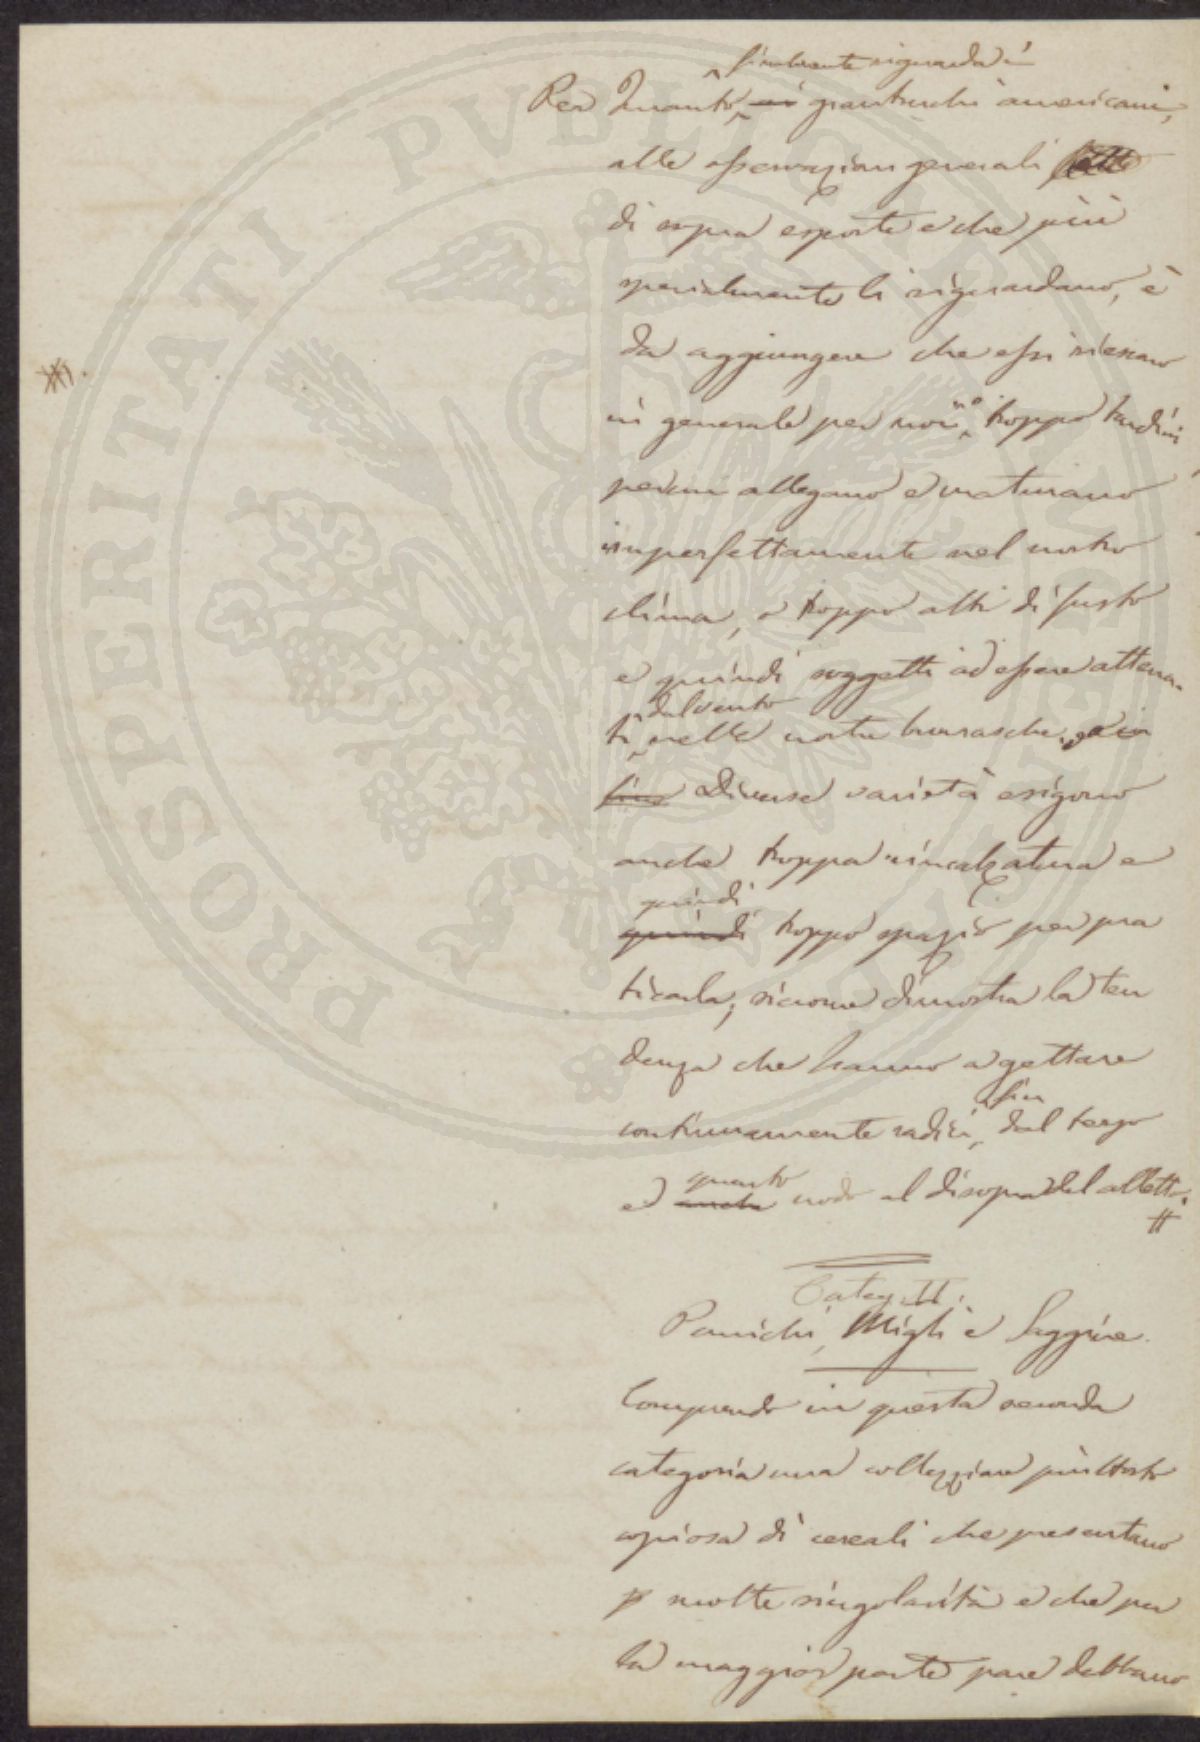 finalmente riguarda i
Per Quanto ai grantürchi americani,
alle osservazioni generali fatte
di sopra esposte e che più
specialmente li riguardano, è
da aggiungere che essi riescano
in generale per noi, o troppo tardivi
per cui allegano e maturano
imperfettamente nel nostro
clima, o troppo alti di fusto
e quindi soggetti ad essere atterra-
dal vento
ti nelle nostre burrasche.
Diverse varietà esigono
anche troppa rincalzatura e
quindi
quindi troppo spazio per pra
ticarla, siccome dimostra la ten
denza che hanno a gettare
fin
continuamente radici, dal terzo
quarto
e anche nodo al disopra del colletto.
Categ. II.
Panichi, Migli e Saggine.
Comprendo in questa seconda
categoria una collezione piuttosto
copiosa di cereali che presentano
p molte singolarità e che per
la maggior parte pare debbano
PROSPERITATI PVBLICAE